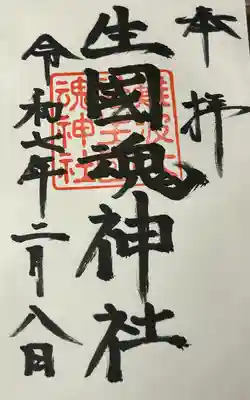 奉拝
生國魂神社
難波大
社生國
魂神社
令和七年二月八日